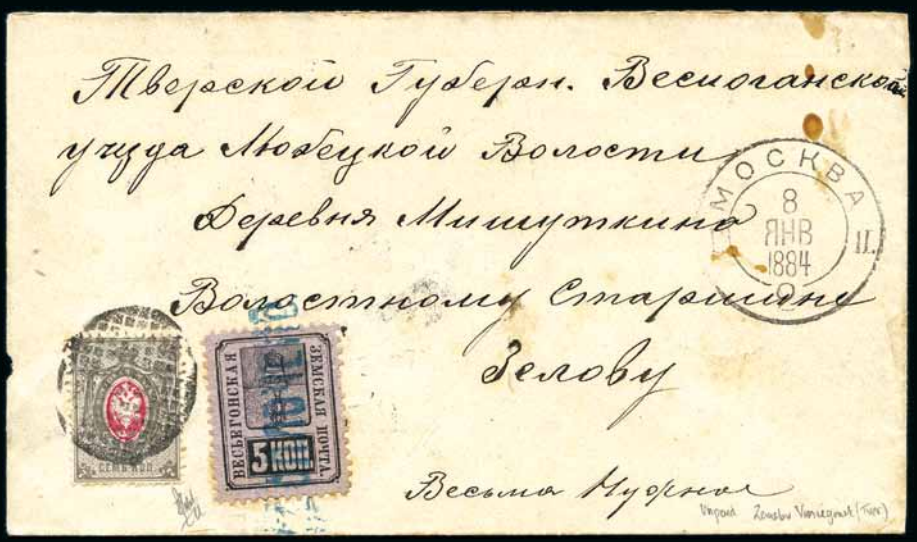 Тверской Губерн. Весиоганской
уѣзда Любецкой Волости
Деревня Мишуткино
Волостному Старшине
Зелову
Весьма Нужное
МОСКВА
8
ЯНВ
1884
II.
СЕМЬ КОП.
ВЕСЬЕГОНСКАЯ
ЗЕМСКАЯ ПОЧТА.
5 КОП.